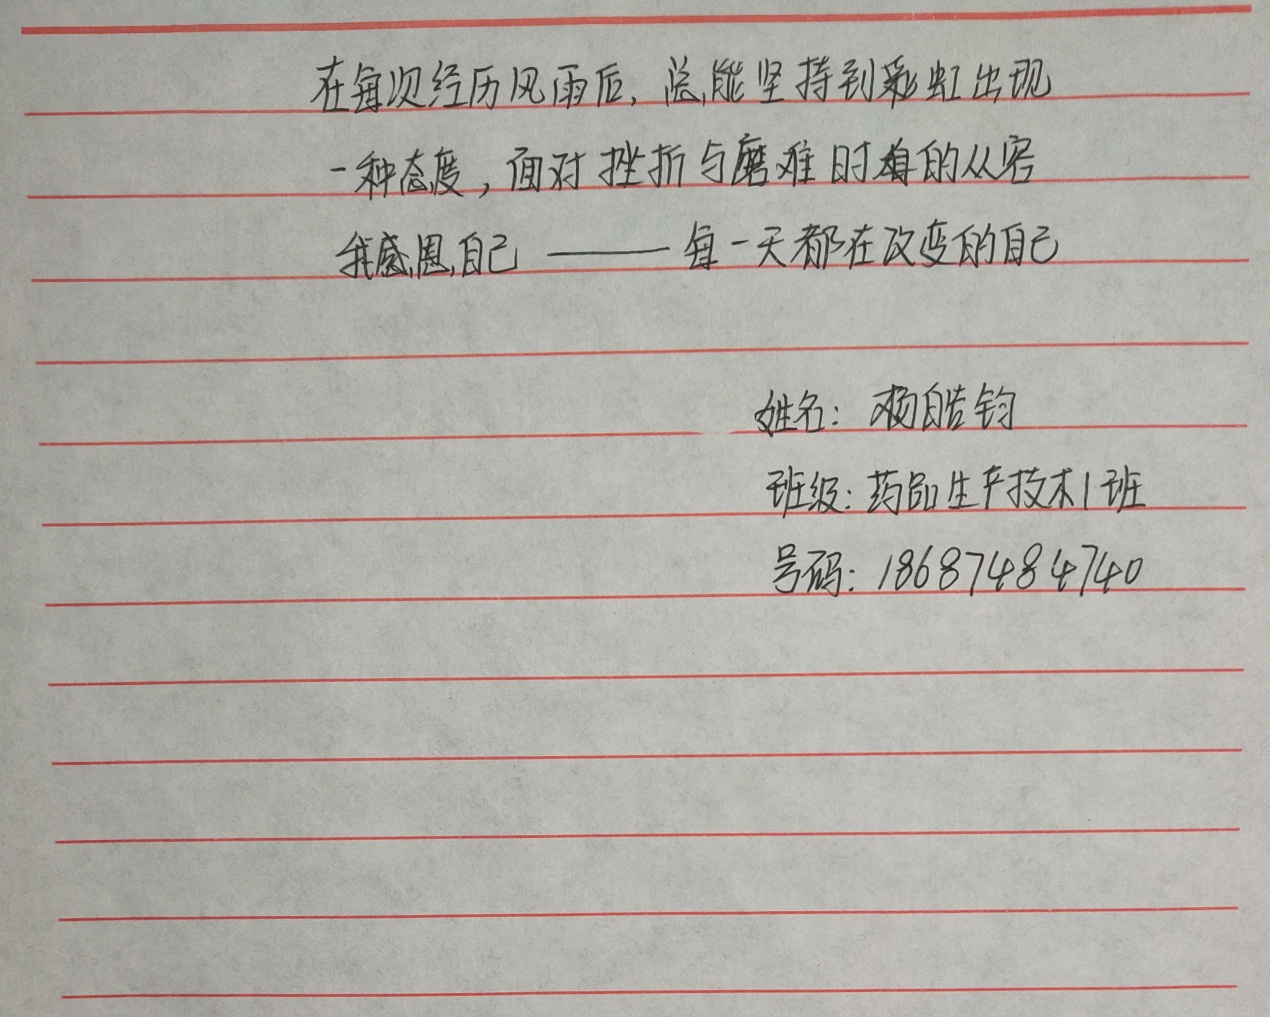 在每次经历风雨后，总能坚持到彩虹出现
一种态度，面对挫折与磨难时有的从容
我感恩自己——每一天都在改变的自己
姓名：杨皓钧
班级：药品生产技术1班
号码：18687484740